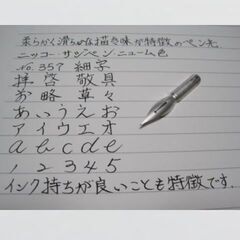 柔らかく滑らかな描き味が特徴のペン先
ニッコー・サジペン・ニューム色
No.357 細字
拝啓 敬具
前略 草々
あいうえお
アイウエオ
abcde
12345
インク持ちが良いことも特徴です.